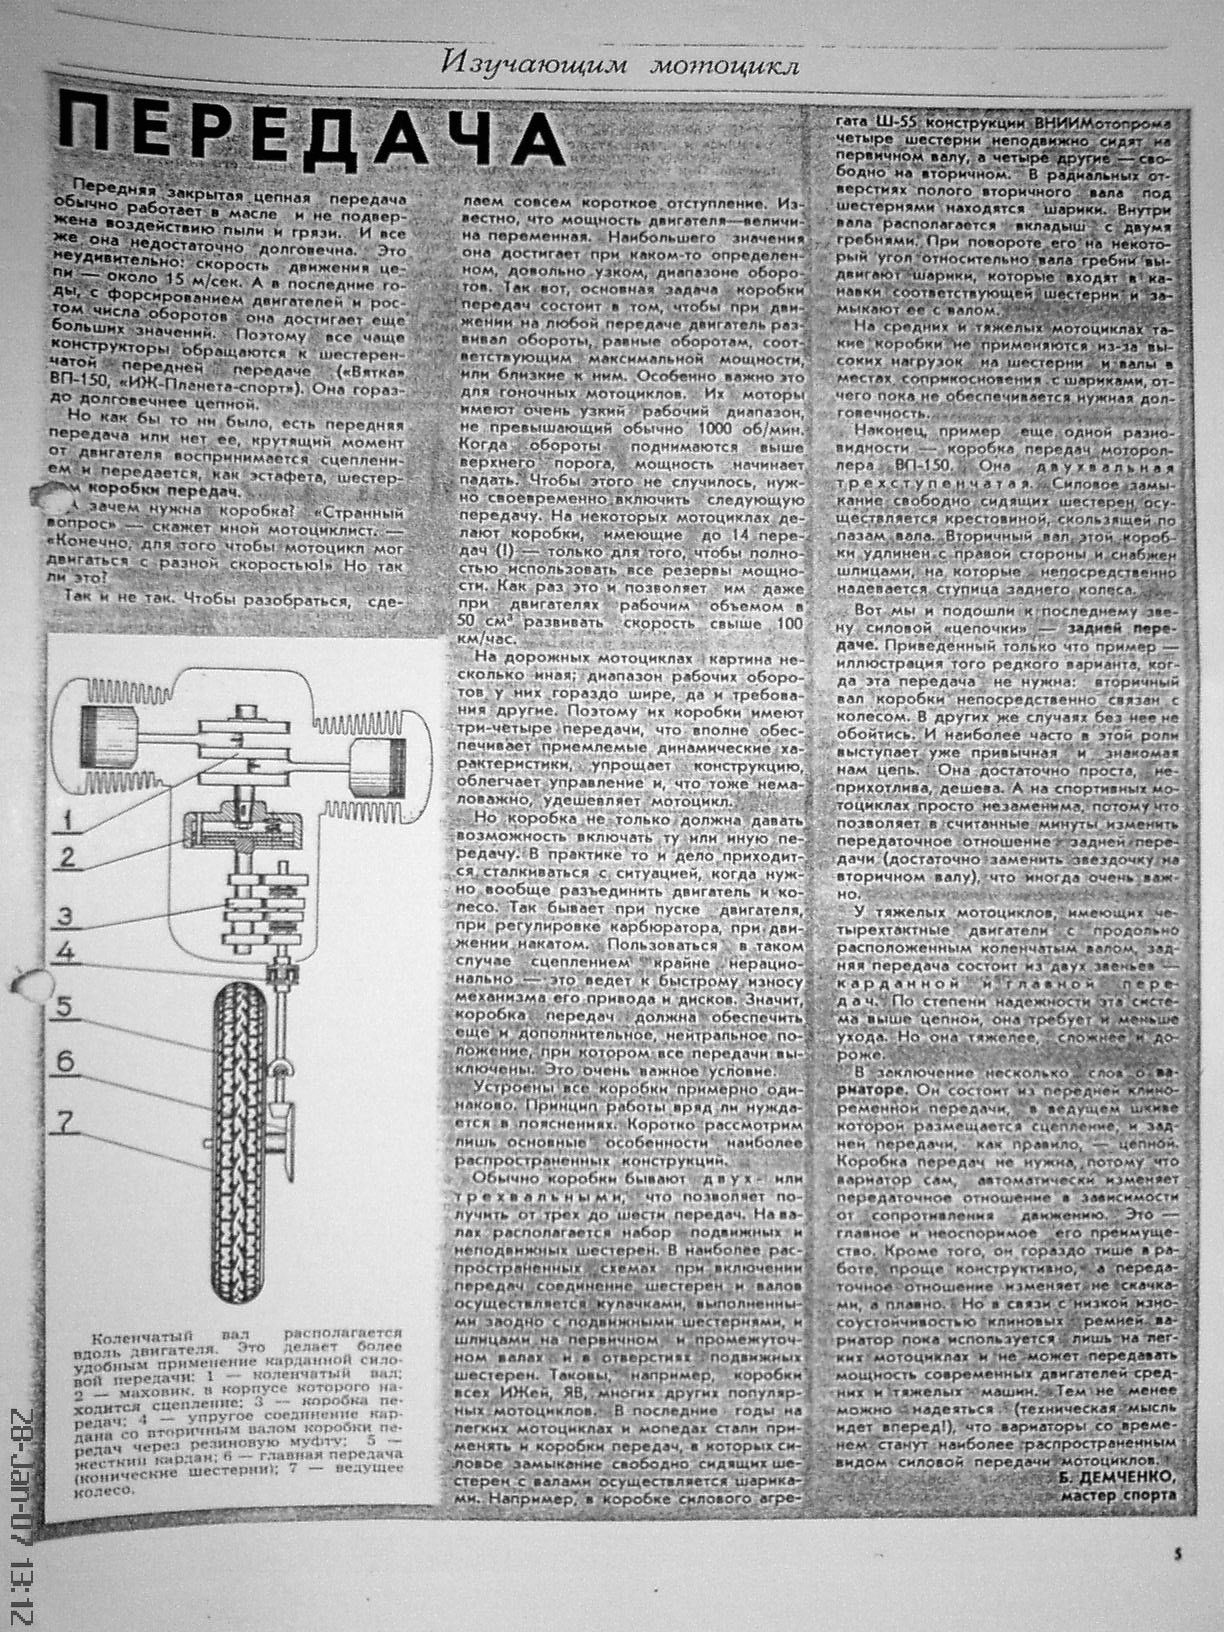 Изучающим мотоцикл
ПЕРЕДАЧА
Передняя закрытая цепная передача
обычно работает в масле и не подвер-
жена воздействию пыли и грязи. И все
же она недостаточно долговечна. Это
неудивительно: скорость движения це-
пи — около 15 м/сек. А в последние го-
ды, с форсированием двигателей и рос-
том числа оборотов она достигает еще
больших значений. Поэтому все чаще
конструкторы обращаются к шестерен-
чатой передней передаче («Вятка»
ВП-150, «ИЖ-Планета-спорт»). Она гораз-
до долговечнее цепной.
Но как бы то ни было, есть передняя
передача или нет ее, крутящий момент
от двигателя воспринимается сцеплени-
ем и передается, как эстафета, шестер-
коробки передач.
зачем нужна коробка? «Странный
вопрос» — скажет иной мотоциклист. —
«Конечно, для того чтобы мотоцикл мог
двигаться с разной скоростью!» Но так
ли это?
Так и не так. Чтобы разобраться, сде-
1
2
3
4
5
6
7
Коленчатый вал располагается
вдоль двигателя. Это делает более
удобным применение карданной сило-
вой передачи: 1 — коленчатый вал;
2 — маховик, в корпусе которого на-
ходится сцепление; 3 — коробка пе-
редач; 4 — упругое соединение кар-
дана со вторичным валом коробки пе-
редач через резиновую муфту; 5 —
жесткий кардан; 6 — главная передача
(конические шестерни); 7 — ведущее
колесо.
лаем совсем короткое отступление. Из-
вестно, что мощность двигателя—величи-
на переменная. Наибольшего значения
она достигает при каком-то определен-
ном, довольно узком, диапазоне оборо-
тов. Так вот, основная задача коробки
передач состоит в том, чтобы при дви-
жении на любой передаче двигатель раз-
вивал обороты, равные оборотам, соот-
ветствующим максимальной мощности,
или близкие к ним. Особенно важно это
для гоночных мотоциклов. Их моторы
имеют очень узкий рабочий диапазон,
не превышающий обычно 1000 об/мин.
Когда обороты поднимаются выше
верхнего порога, мощность начинает
падать. Чтобы этого не случилось, нуж-
но своевременно включить следующую
передачу. На некоторых мотоциклах де-
лают коробки, имеющие до 14 пере-
дач (!) — только для того, чтобы полно-
стью использовать все резервы мощно-
сти. Как раз это и позволяет им даже
при двигателях рабочим объемом в
50 см³ развивать скорость свыше 100
км/час.
На дорожных мотоциклах картина не-
сколько иная; диапазон рабочих оборо-
тов у них гораздо шире, да и требова-
ния другие. Поэтому их коробки имеют
три-четыре передачи, что вполне обес-
печивает приемлемые динамические ха-
рактеристики, упрощает конструкцию,
облегчает управление и, что тоже нема-
ловажно, удешевляет мотоцикл.
Но коробка не только должна давать
возможность включать ту или иную пе-
редачу. В практике то и дело приходит-
ся сталкиваться с ситуацией, когда нуж-
но вообще разъединить двигатель и ко-
лесо. Так бывает при пуске двигателя,
при регулировке карбюратора, при дви-
жении накатом. Пользоваться в таком
случае сцеплением крайне нерацио-
нально — это ведет к быстрому износу
механизма его привода и дисков. Значит,
коробка передач должна обеспечить
еще и дополнительное, нейтральное по-
ложение, при котором все передачи вы-
ключены. Это очень важное условие.
Устроены все коробки примерно оди-
наково. Принцип работы вряд ли нужда-
ется в пояснениях. Коротко рассмотрим
лишь основные особенности наиболее
распространенных конструкций.
Обычно коробки бывают двух- или
трехвальными, что позволяет по-
лучить от трех до шести передач. На ва-
лах располагается набор подвижных и
неподвижных шестерен. В наиболее рас-
пространенных схемах при включении
передач соединение шестерен и валов
осуществляется кулачками, выполненны-
ми заодно с подвижными шестернями, и
шлицами на первичном и промежуточ-
ном валах и в отверстиях подвижных
шестерен. Таковы, например, коробки
всех ИЖей, ЯВ, многих других популяр-
ных мотоциклов. В последние годы на
легких мотоциклах и мопедах стали при-
менять и коробки передач, в которых си-
ловое замыкание свободно сидящих ше-
стерен с валами осуществляется шарика-
ми. Например, в коробке силового агре-
гата Ш-55 конструкции ВНИИМотопрома
четыре шестерни неподвижно сидят на
первичном валу, а четыре другие — сво-
бодно на вторичном. В радиальных от-
верстиях полого вторичного вала под
шестернями находятся шарики. Внутри
вала располагается вкладыш с двумя
гребнями. При повороте его на некото-
рый угол относительно вала гребни вы-
двигают шарики, которые входят в ка-
навки соответствующей шестерни и за-
мыкают ее с валом.
На средних и тяжелых мотоциклах та-
кие коробки не применяются из-за вы-
соких нагрузок на шестерни и валы в
местах соприкосновения с шариками, от-
чего пока не обеспечивается нужная дол-
говечность.
Наконец, пример еще одной разно-
видности — коробка передач моторол-
лера ВП-150. Она двухвальная
трехступенчатая. Силовое замы-
кание свободно сидящих шестерен осу-
ществляется крестовиной, скользящей по
пазам вала. Вторичный вал этой короб-
ки удлинен с правой стороны и снабжен
шлицами, на которые непосредственно
надевается ступица заднего колеса.
Вот мы и подошли к последнему зве-
ну силовой «цепочки» — задней пере-
даче. Приведенный только что пример —
иллюстрация того редкого варианта, ког-
да эта передача не нужна: вторичный
вал коробки непосредственно связан с
колесом. В других же случаях без нее не
обойтись. И наиболее часто в этой роли
выступает уже привычная и знакомая
нам цепь. Она достаточно проста, не-
прихотлива, дешева. А на спортивных мо-
тоциклах просто незаменима, потому что
позволяет в считанные минуты изменить
передаточное отношение задней пере-
дачи (достаточно заменить звездочку на
вторичном валу), что иногда очень важ-
но.
У тяжелых мотоциклов, имеющих че-
тырехтактные двигатели с продольно
расположенным коленчатым валом, зад-
няя передача состоит из двух звеньев —
карданной и главной пере-
дач. По степени надежности эта систе-
ма выше цепной, она требует и меньше
ухода. Но она тяжелее, сложнее и до-
роже.
В заключение несколько слов о ва-
риаторе. Он состоит из передней клино-
ременной передачи, в ведущем шкиве
которой размещается сцепление, и зад-
ней передачи, как правило, — цепной.
Коробка передач не нужна, потому что
вариатор сам, автоматически изменяет
передаточное отношение в зависимости
от сопротивления движению. Это —
главное и неоспоримое его преимуще-
ство. Кроме того, он гораздо тише в ра-
боте, проще конструктивно, а переда-
точное отношение изменяет не скачка-
ми, а плавно. Но в связи с низкой изно-
соустойчивостью клиновых ремней ва-
риатор пока используется лишь на лег-
ких мотоциклах и не может передавать
мощность современных двигателей сред-
них и тяжелых машин. Тем не менее
можно надеяться (техническая мысль
идет вперед!), что вариаторы со време-
нем станут наиболее распространенным
видом силовой передачи мотоциклов.
Б. ДЕМЧЕНКО,
мастер спорта
5
28-Jan-07 13:12